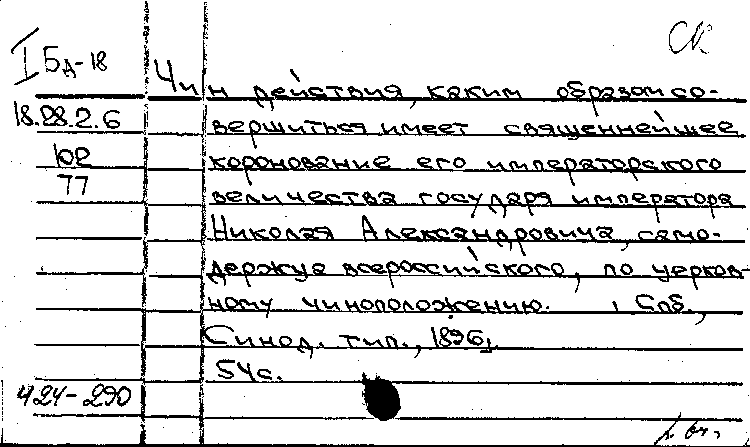 СК
I Бд-18
Чин действия, каким образом со-
18.28.2.6
вершиться имеет священнейшее
102
коронование его императорского
77
величества государя императора
Николая Александровича, само-
держца всероссийского, по церков-
ному чиноположению. Спб.,
Синод. тип., 1896,
54с.
424-290